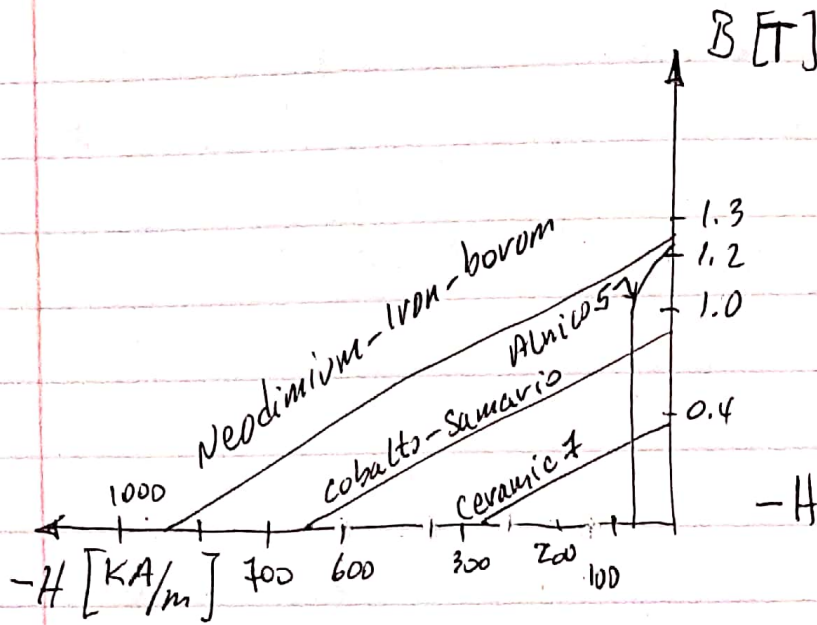 B [T]
1.3
1.2
1.0
0.4
Neodimium-Iron-borom
Alnico 5
cobalto-samario
ceramic 7
1000
-H
-H [KA/m]
700
600
300
200
100